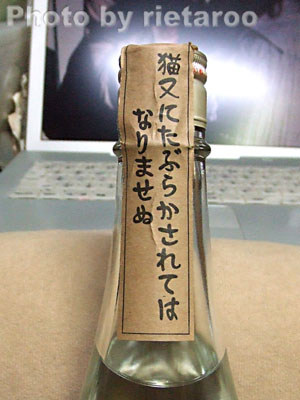 Photo by rietaroo
猫又にたぶらかされては
なりませぬ